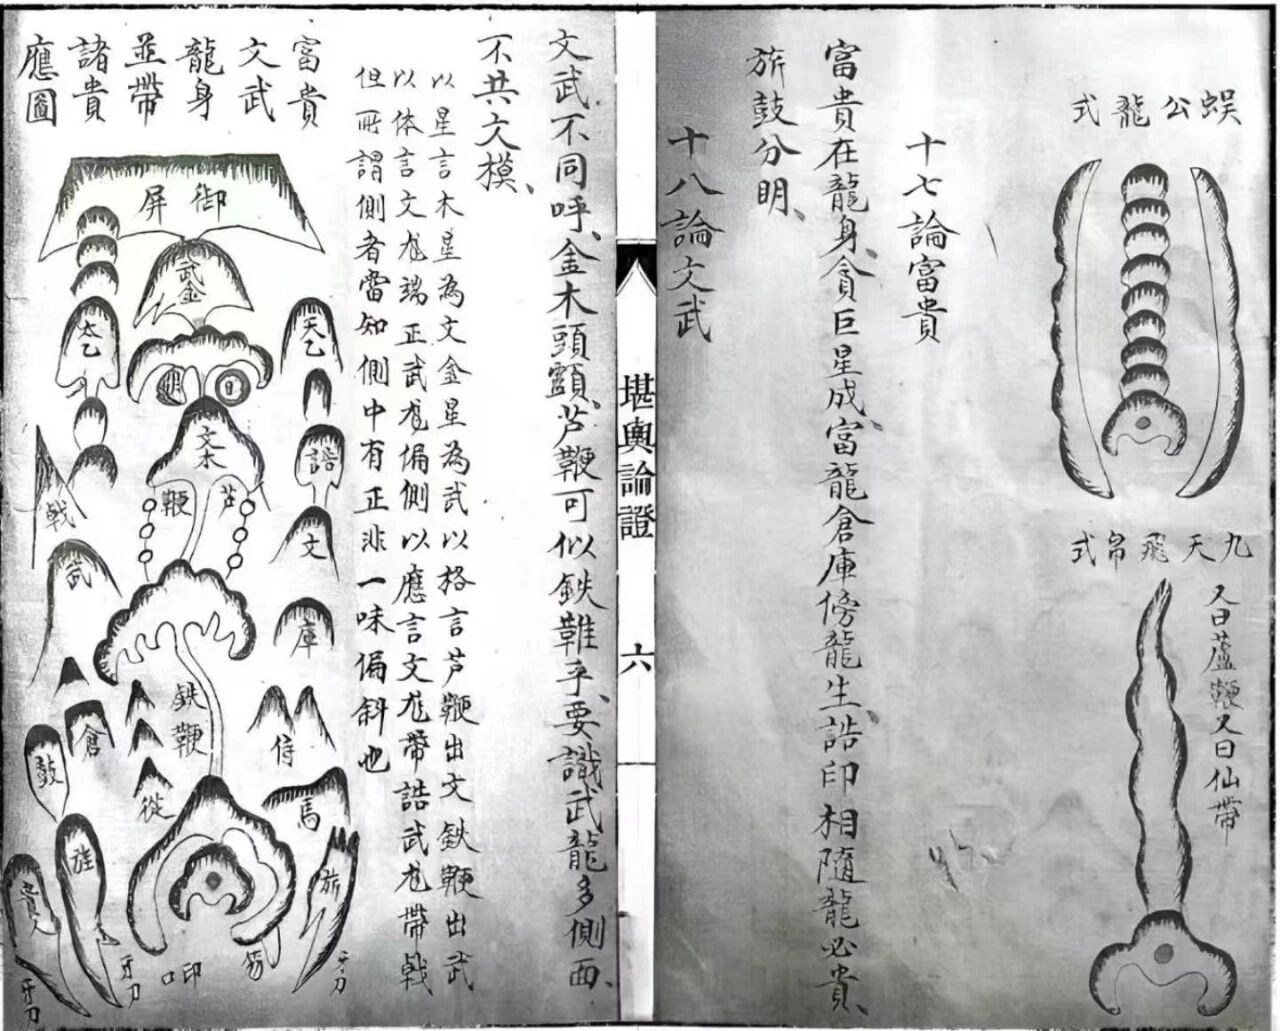 蜈公龍式
九天飛帛式
又曰蘆鞭又曰仙帶
十七論富貴
富貴在龍身、貪巨星成富、龍倉庫傍龍生、誥印相隨龍必貴、
旂鼓分明、
十八論文武
堪輿論證
六
文武不同呼、金木頭顱、芦鞭可似鉄鞭乎、要識武龍多側面、
不共文模、
以星言木星為文金星為武以格言芦鞭出文鉄鞭出武
以体言文尨端正武尨偏側以應言文尨帶誥武尨帶戟
但所謂側者當知側中有正非一味偏斜也
富貴
文武
龍身
並帶
諸貴
應圖
御屏
武金
天乙
太乙
文木
誥
芦鞭
戟
文
武
庫
鉄鞭
倉
侍
鼓
從
馬
旌
旂
貴人
牙刀
牙刀
印
笏
牙刀